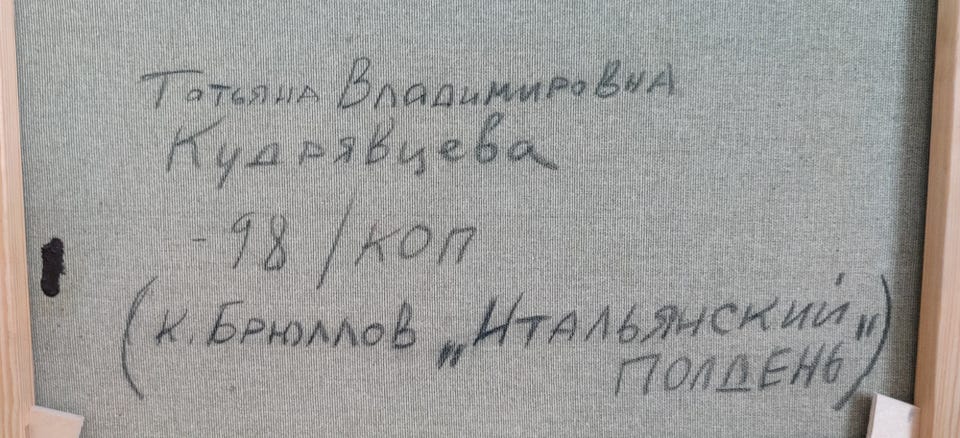 Татьяна Владимировна
Кудрявцева
-98/коп
(К. Брюллов „Итальянский"
полдень)